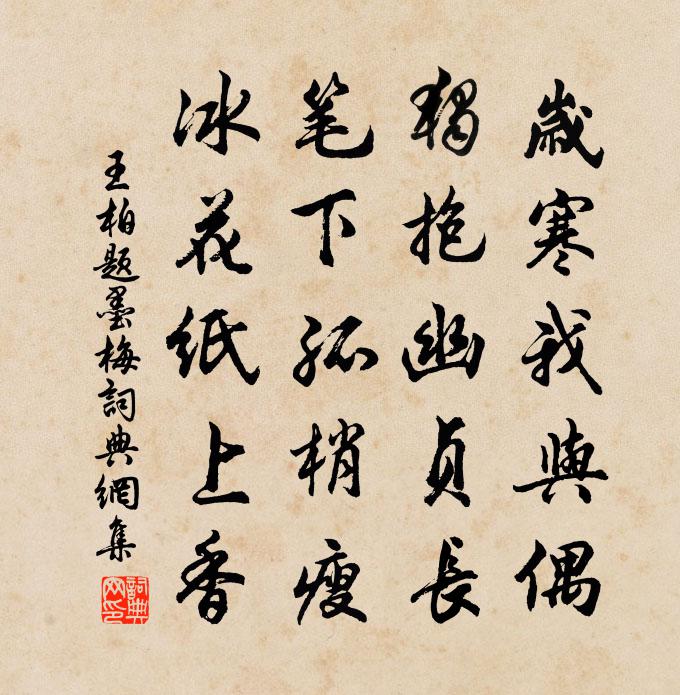 歲寒我與偶
獨抱幽貞長
笔下孤梢瘦
冰花紙上香
王柏題墨梅詞典網集
詞典
网印